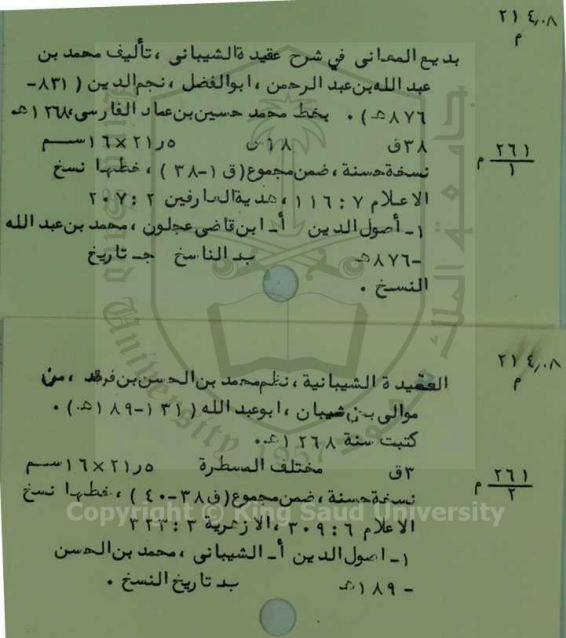 ٢١٤,٠٨
م
بديع المعانى في شرح عقيدة الشيبانى ، تأليف محمد بن
عبد الله بن عبد الرحمن ، ابو الفضل ، نجم الدين ( ٨٣١-
٨٧٦ هـ ) . بخط محمد حسين بن عماد الفارسى، ١٢٦٨هـ
٣٨ق ١٨س ٢١×١٦٫٥ســم
٢٦١
١ م
نسخة حسنة ، ضمن مجموع (ق ١-٣٨ ) ، خطها نسخ
الاعلام ٧ : ١١٦ ، هدية العارفين ٢ : ٢٠٧
١- أصول الدين أ- ابن قاضى عجلون ، محمد بن عبد الله
-٨٧٦هـ ب- الناسخ جـ- تاريخ
النسخ .
٢١٤,٠٨
م
العقيدة الشيبانية ، نظم محمد بن الحسن بن فرقد ، من
موالى بنى شيبان ، ابو عبد الله ( ١٣١-١٨٩هـ ) .
كتبت سنة ١٢٦٨هـ.
٣ق مختلف المسطرة ٢١×١٦٫٥ســم
٢٦١
٢ م
نسخة حسنة ، ضمن مجموع (ق ٣٨-٤٠ ) ، خطها نسخ
Copyright © King Saud University
الاعلام ٦ : ٣٠٩ ، الازهرية ٣ : ٣٢٣
١- اصول الدين أ- الشيبانى ، محمد بن الحسن
- ١٨٩هـ ب- تاريخ النسخ .
جامعة الملك سعود
King Saud University
1957